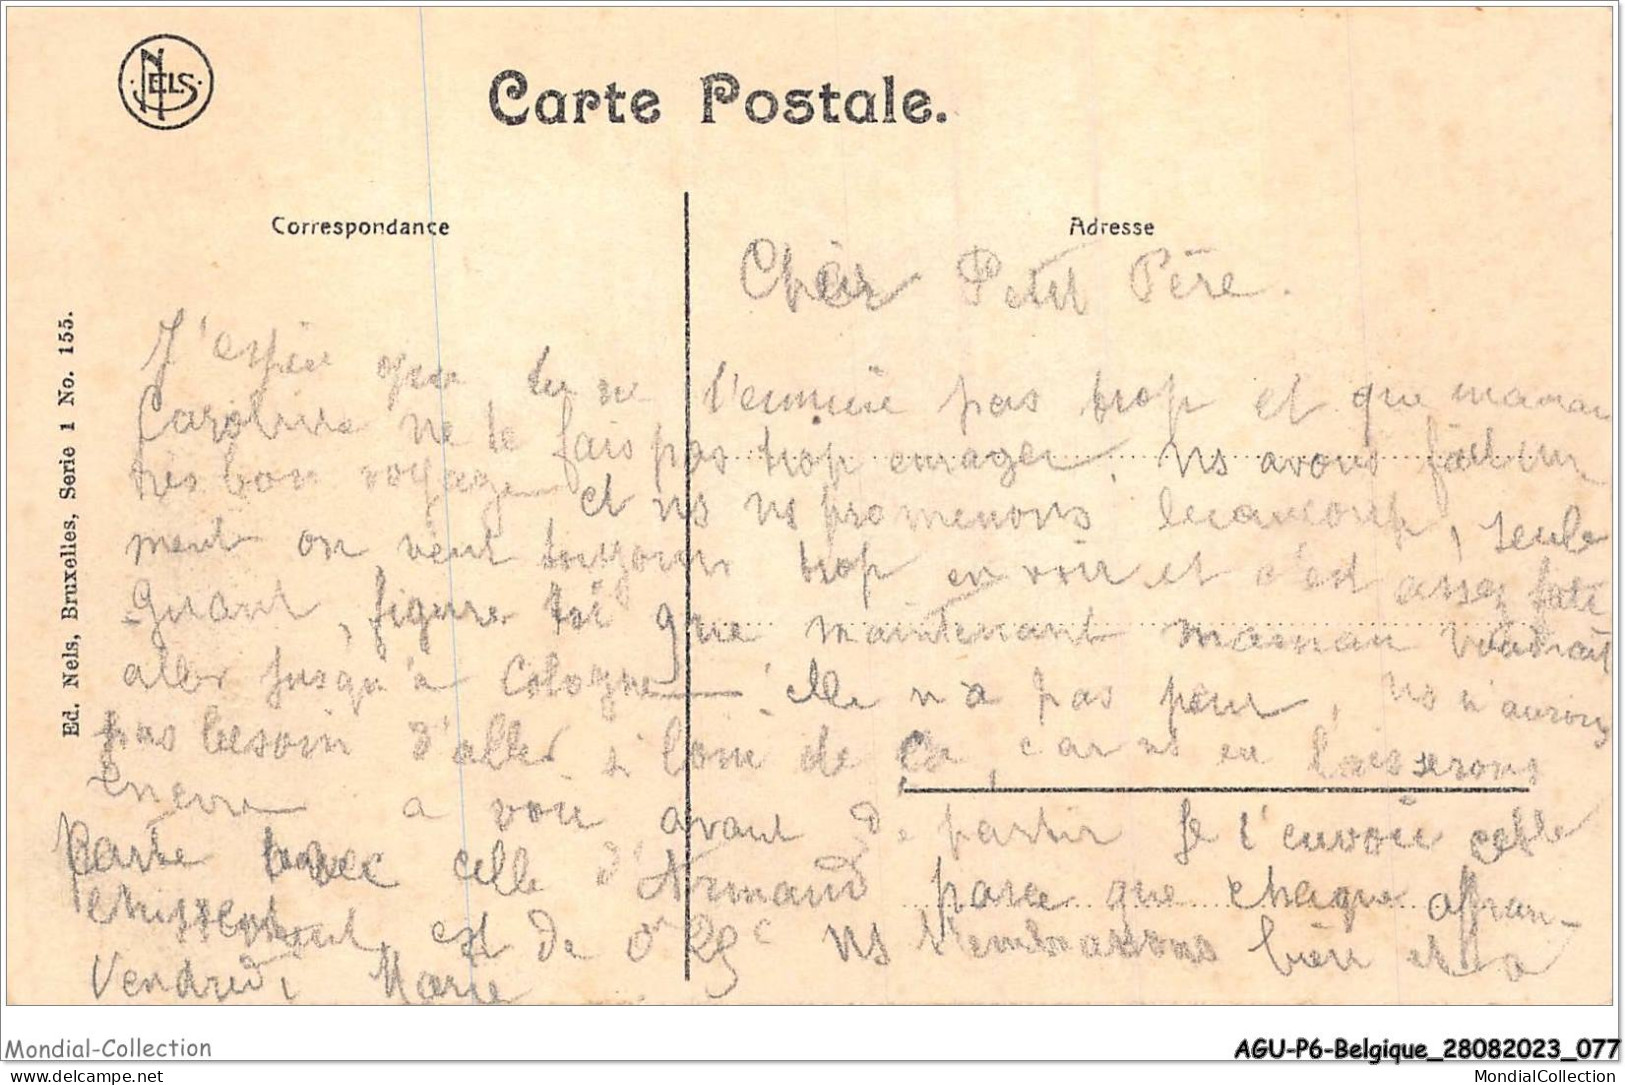 NELS
Carte Postale.
Correspondance
Adresse
Ed. Nels, Bruxelles, Serie 1 No. 155.
Cher Petit Père.
J'espère que tu ne t'ennuie pas trop et que maman
Caroline ne te fais pas trop enrager. Ns avons fait un
très bon voyage et ns ns promenons beaucoup, seule
ment on veut toujours trop en voir et c'est assez fati
guant, figure toi que maintenant maman voudrait
aller jusqu'à Cologne elle n'a pas peur, ns n'aurons
pas besoin d'aller si loin de ça, car ns en laisserons
encore a voir avant de partir Je t'envoie cette
carte avec celle d'Armand parce que chaque affran-
chissement est de 0,25c ns t'embrassons bien et à
Vendredi Marie
Mondial-Collection
AGU-P6-Belgique_28082023_077
delcampe.net
MondialCollection